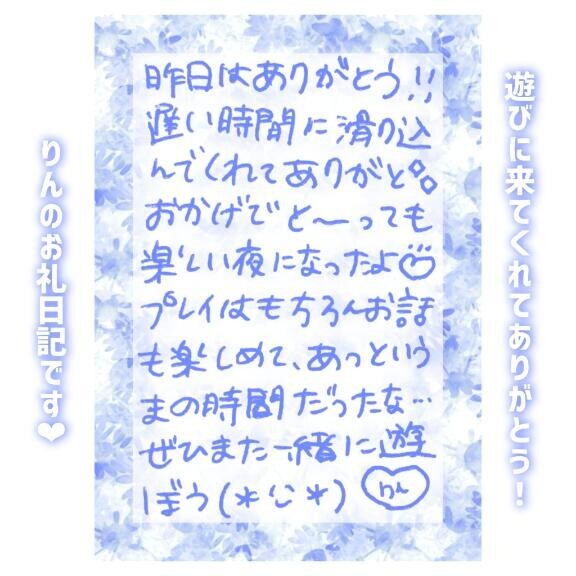 遊びに来てくれてありがとう！
昨日はありがとう!!
遅い時間に滑り込
んでくれてありがと
おかげでと〜っても
楽しい夜になったよ
プレイはもちろんお話
も楽しめて、あっという
まの時間だったな…
ぜひまた一緒に遊
ぼう(*ᵕ*)
りん
りんのお礼日記です❤